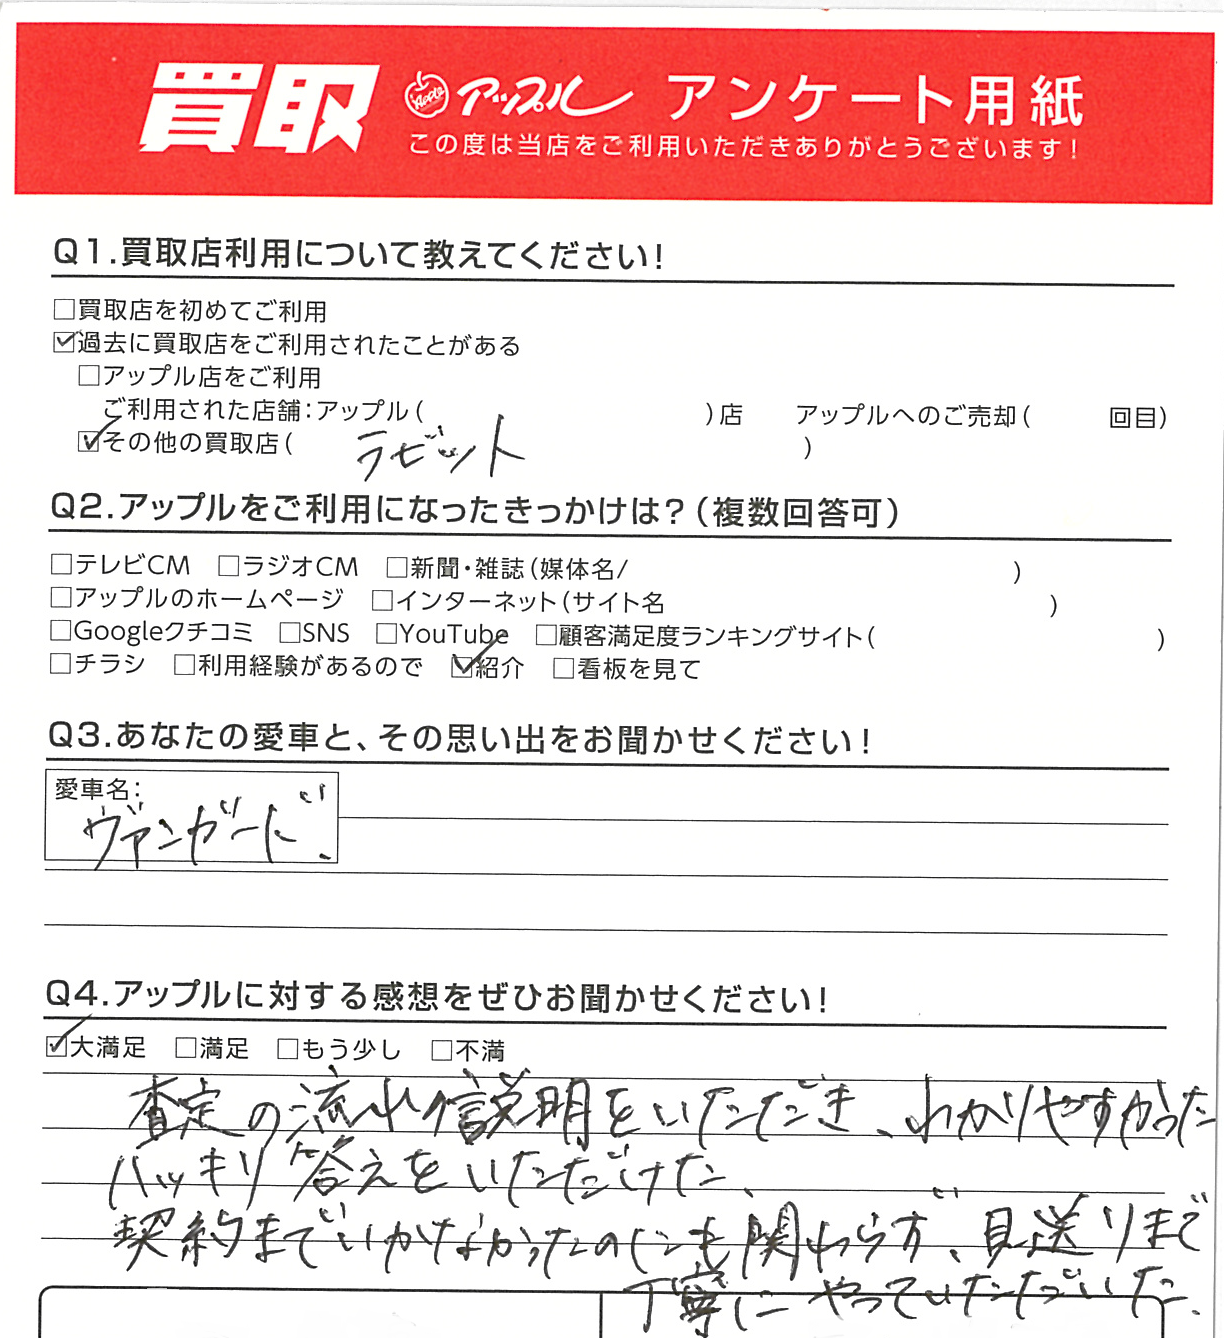 買取 Apple アップル アンケート用紙
この度は当店をご利用いただきありがとうございます!
Q1.買取店利用について教えてください!
□買取店を初めてご利用
☑過去に買取店をご利用されたことがある
□アップル店をご利用
ご利用された店舗:アップル( )店 アップルへのご売却( 回目)
☑その他の買取店( ラビット )
Q2.アップルをご利用になったきっかけは?(複数回答可)
□テレビCM □ラジオCM □新聞・雑誌(媒体名/ )
□アップルのホームページ □インターネット(サイト名 )
□Googleクチコミ □SNS □YouTube □顧客満足度ランキングサイト( )
□チラシ □利用経験があるので ☑紹介 □看板を見て
Q3.あなたの愛車と、その思い出をお聞かせください!
愛車名:
ヴァンガード.
Q4.アップルに対する感想をぜひお聞かせください!
☑大満足 □満足 □もう少し □不満
査定の流れ 説明をいただき、わかりやすかった
ハッキリ答えをいただけた、
契約までいかなかったのにも関わらず、見送りまで
丁寧にやっていただいた、